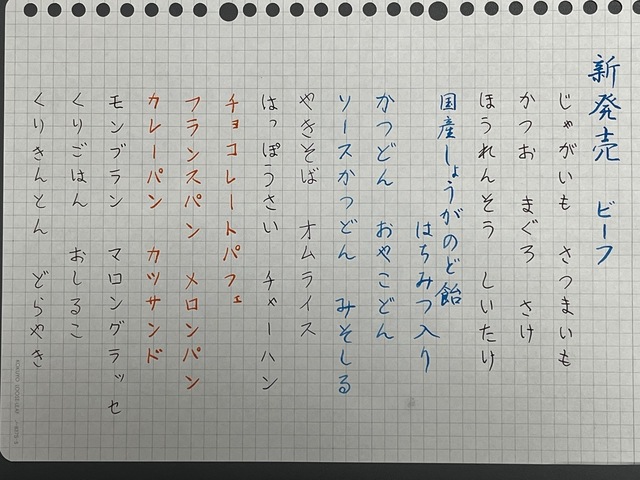 新発売 ビーフ
じゃがいも さつまいも
かつお まぐろ さけ
ほうれんそう しいたけ
国産しょうがのど飴
はちみつ入り
かつどん おやこどん
ソースかつどん みそしる
やきそば オムライス
はっぽうさい チャーハン
チョコレートパフェ
フランスパン メロンパン
カレーパン カツサンド
モンブラン マロングラッセ
くりごはん おしるこ
くりきんとん どらやき